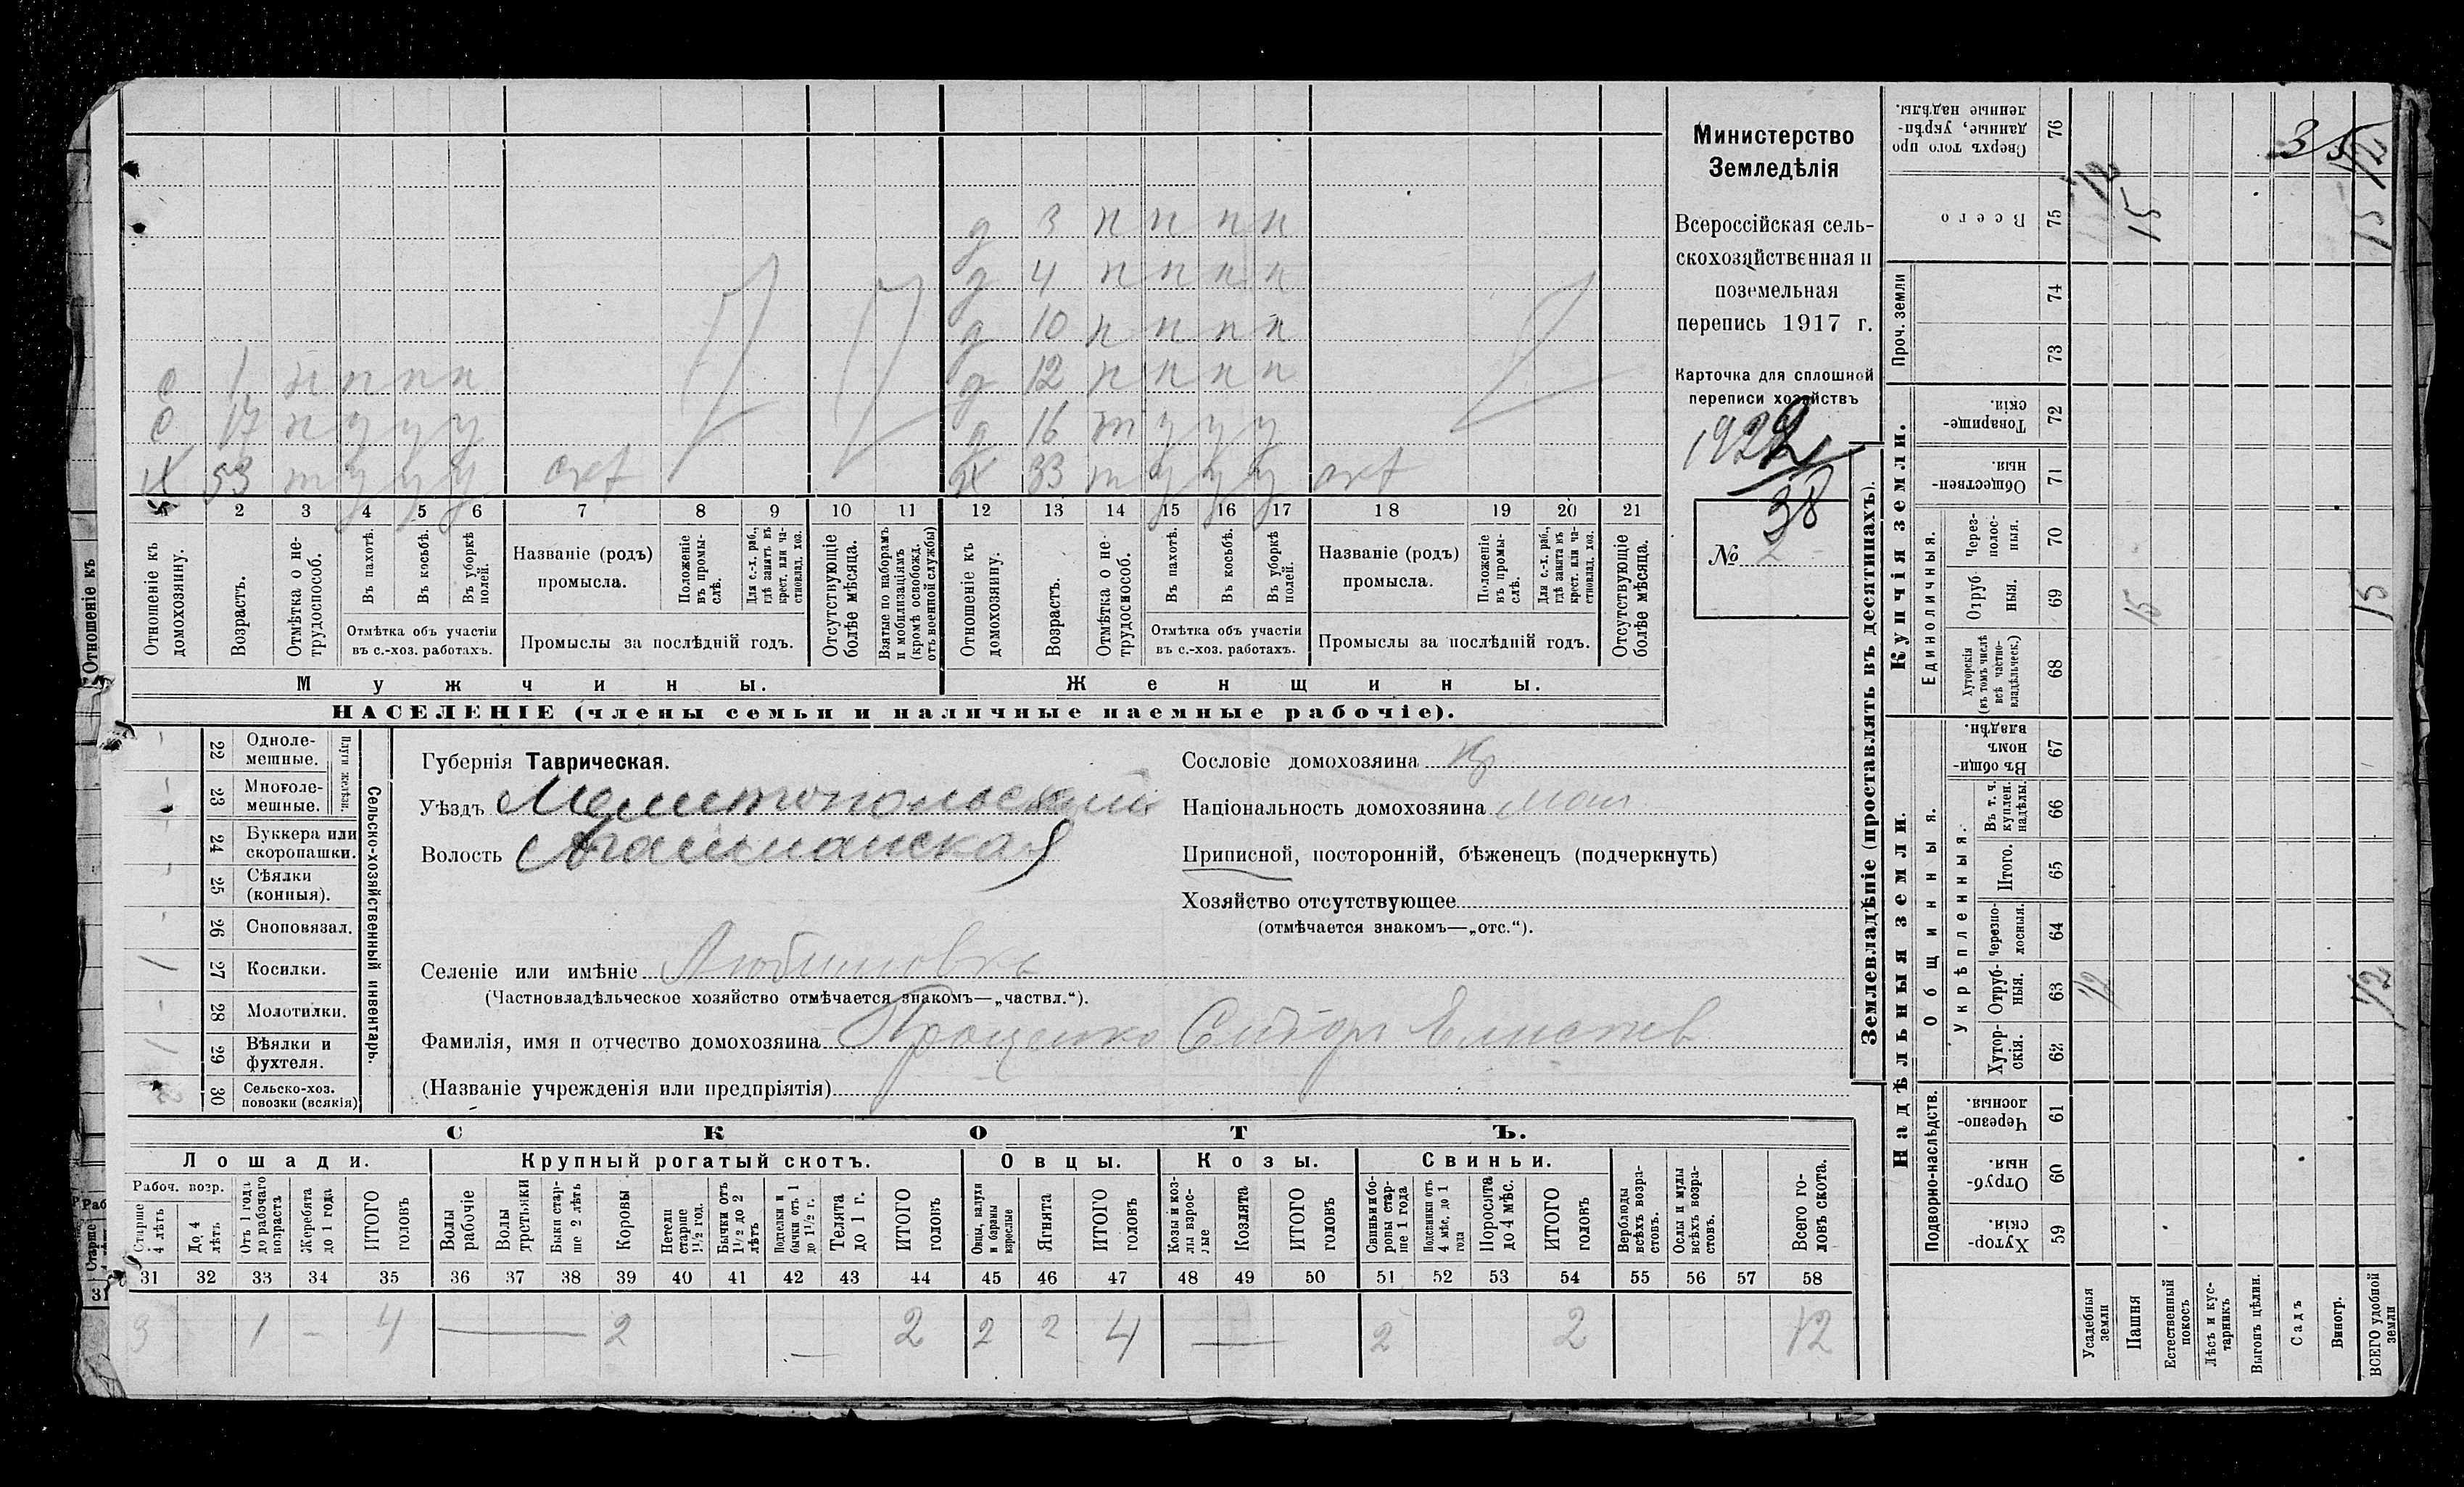 Министерство
Земледѣлія
Всероссійская сель-
скохозяйственная и
поземельная
перепись 1917 г.
Карточка для сплошной
переписи хозяйствъ
1922
38
№ 2
д 3 н н н н
д 4 н н н н
д 10 н н н н
с 1 н н н н д 12 н н н н
с 17 н у у у д 16 т у у у
х 53 т у у у х 33 т у у у
1 2 3 4 5 6 7 8 9 10 11 12 13 14 15 16 17 18 19 20 21
Отношеніе къ домохозяину.
Возрастъ.
Отмѣтка о не-трудоспособ.
Въ пахотѣ.
Въ косьбѣ.
Въ уборкѣ полей.
Отмѣтка объ участіи
въ с.-хоз. работахъ.
Названіе (родъ)
промысла.
Положеніе въ промы-слѣ.
Для с.-х. раб., гдѣ занятъ въ крест. или ча-стновлад. хоз.
Промыслы за послѣдній годъ.
Отсутствующіе болѣе мѣсяца.
Взятые по наборамъ и мобилизаціямъ (кромѣ освобожд. отъ военной службы)
Отношеніе къ домохозяину.
Возрастъ.
Отмѣтка о не трудоспособ.
Въ пахотѣ.
Въ косьбѣ.
Въ уборкѣ полей.
Отмѣтка объ участіи
въ с.-хоз. работахъ.
Названіе (родъ)
промысла.
Положеніе въ промы-слѣ.
Для с.-х. раб., гдѣ занята въ крест. или ча-стновлад. хоз.
Промыслы за послѣдній годъ.
Отсутствующіе болѣе мѣсяца.
Мужчины. Женщины.
НАСЕЛЕНІЕ (члены семьи и наличные наемные рабочіе).
Отношеніе къ
Сельско-хозяйственный инвентарь.
Плуги желѣзн.
- 22 Одноле-мешные.
- 23 Многоле-мешные.
- 24 Буккера или скоропашки.
- 25 Сѣялки (конныя).
- 26 Сноповязал.
1 27 Косилки.
- 28 Молотилки.
1 29 Вѣялки и фухтеля.
2 30 Сельско-хоз. повозки (всякія)
Губернія Таврическая.
Уѣздъ Мелитопольскій
Волость Агайманская
Селеніе или имѣніе Любимовка
(Частновладѣльческое хозяйство отмѣчается знакомъ—„частвл.“).
Фамилія, имя и отчество домохозяина Проценко Сидоръ
(Названіе учрежденія или предпріятія)
Сословіе домохозяина кр
Національность домохозяина мал
Приписной, посторонній, бѣженецъ (подчеркнуть)
Хозяйство отсутствующее
(отмѣчается знакомъ—„отс.“).
СКОТЪ.
Лошади. Крупный рогатый скотъ. Овцы. Козы. Свиньи.
Рабоч. возр.
Старше 4 лѣтъ
До 4 лѣтъ
Отъ 1 года до рабочаго возраста
Жеребята до 1 года
ИТОГО головъ
Волы рабочіе
Волы третьяки
Быки стар-ше 2 лѣтъ
Коровы
Нетели старше 1½ год.
Бычки отъ 1½ до 2 лѣтъ
Подтелки и бычки отъ 1 до 1½ г.
Телята до 1 г.
ИТОГО головъ
Овцы, валухи и бараны взрослые
Ягнята
ИТОГО головъ
Козы и коз-лы взрос-лые
Козлята
ИТОГО головъ
Свиньи и бо-ровы стар-ше 1 года
Подсвинки отъ 4 мѣс. до 1 года
Поросята до 4 мѣс.
ИТОГО головъ
Верблюды всѣхъ возра-стовъ.
Ослы и мулы всѣхъ возра-стовъ.
Всего го-ловъ скота.
31 32 33 34 35 36 37 38 39 40 41 42 43 44 45 46 47 48 49 50 51 52 53 54 55 56 57 58
3 1 - 4 — 2 — 2 2 2 4 — 2 2 12
Землевладѣніе (проставлять въ десятинахъ).
Надѣльныя земли. Купчія земли.
Подворно-наслѣдств.
Общинныя.
Укрѣпленныя.
Единоличныя.
Проч. земли
Сверхъ того про данные, укрѣп-ленные надѣлы. 76
Всего 75
74
73
Товарище-скія. 72
Обществен-ныя. 71
Через-полос-ныя. 70
Отруб ныя. 69
Хуторскія (въ томъ числѣ всѣ частно-владѣльческ.) 68
Въ общи-номъ владѣн. 67
Въ т. ч. куплен. надѣлы. 66
Итого. 65
Черезпо-лосныя. 64
Отруб-ныя. 63
Хутор-скія. 62
Черезпо-лосныя. 61
Отруб-ныя. 60
Хутор-скія. 59
Усадебныя земли
Пашня
Естественный покосъ
Лѣсъ и кус-тарникъ
Выгонъ цѣлин.
Садъ
Виногр.
ВСЕГО удобной земли
35
12
12
15
15
15
15
12
12